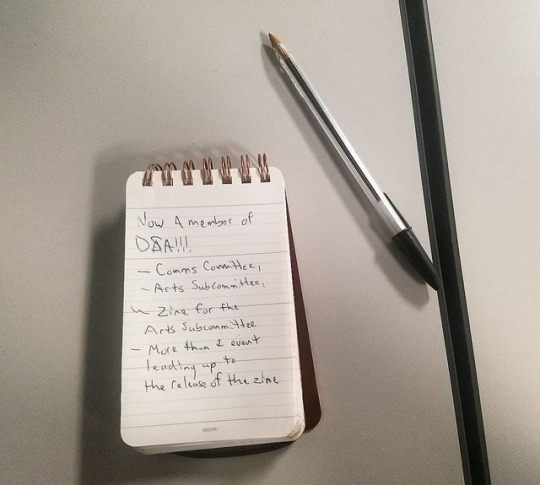 Now A member of
DSA!!!
— Comms Committee,
— Arts Subcommittee,
Zine for the
Arts Subcommittee
— More than 1 event
leading up to
the release of the zine
MIDORI